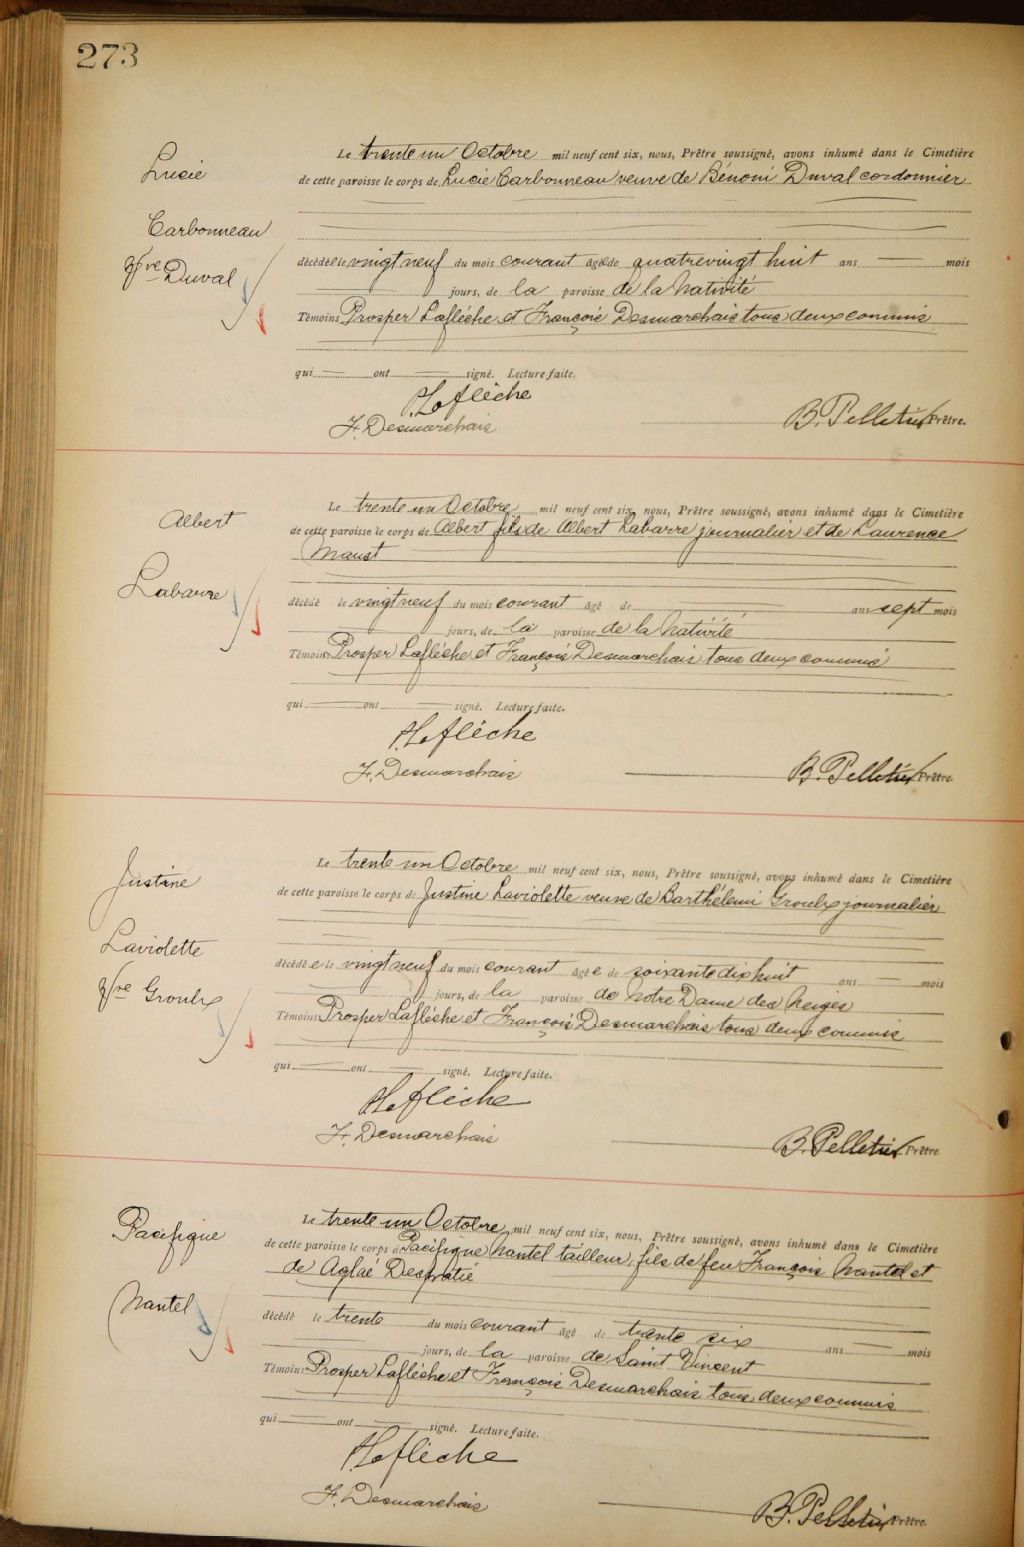 273
Lucie
Carbonneau
Vve Duval
Le trente un Octobre mil neuf cent six, nous, Prêtre soussigné, avons inhumé dans le Cimetière
de cette paroisse le corps de Lucie Carbonneau veuve de Bénoni Duval cordonnier
décédée le vingt neuf du mois courant âgée de quatrevingt huit ans mois
jours, de la paroisse de la Nativité
Témoins Prosper Laflèche et François Desmarchais tous deux commis
qui ont signé. Lecture faite.
P. Laflèche
F. Desmarchais
B. Pelletier Prêtre.
Albert
Labarre
Le trente un Octobre mil neuf cent six, nous, Prêtre soussigné, avons inhumé dans le Cimetière
de cette paroisse le corps de Albert fils de Albert Labarre journalier et de Laurence
décédé le vingt neuf du mois courant âgé de ans sept mois
jours, de la paroisse de la Nativité
Témoins Prosper Laflèche et François Desmarchais tous deux commis
qui ont signé. Lecture faite.
P. Laflèche
F. Desmarchais
B. Pelletier Prêtre.
Justine
Laviolette
Vve Groulx
Le trente un Octobre mil neuf cent six, nous, Prêtre soussigné, avons inhumé dans le Cimetière
de cette paroisse le corps de Justine Laviolette veuve de Barthélemi Groulx journalier
décédée le vingt neuf du mois courant âgée de soixante dix huit ans mois
jours, de la paroisse de Notre Dame des Neiges
Témoins Prosper Laflèche et François Desmarchais tous deux commis
qui ont signé. Lecture faite.
P. Laflèche
F. Desmarchais
B. Pelletier Prêtre.
Pacifique
Nantel
Le trente un Octobre mil neuf cent six, nous, Prêtre soussigné, avons inhumé dans le Cimetière
de cette paroisse le corps de Pacifique Nantel tailleur, fils de feu François Nantel et
de Aglaé Despatie
décédé le trente du mois courant âgé de trente six ans mois
jours, de la paroisse de Saint Vincent
Témoins Prosper Laflèche et François Desmarchais tous deux commis
qui ont signé. Lecture faite.
P. Laflèche
F. Desmarchais
B. Pelletier Prêtre.